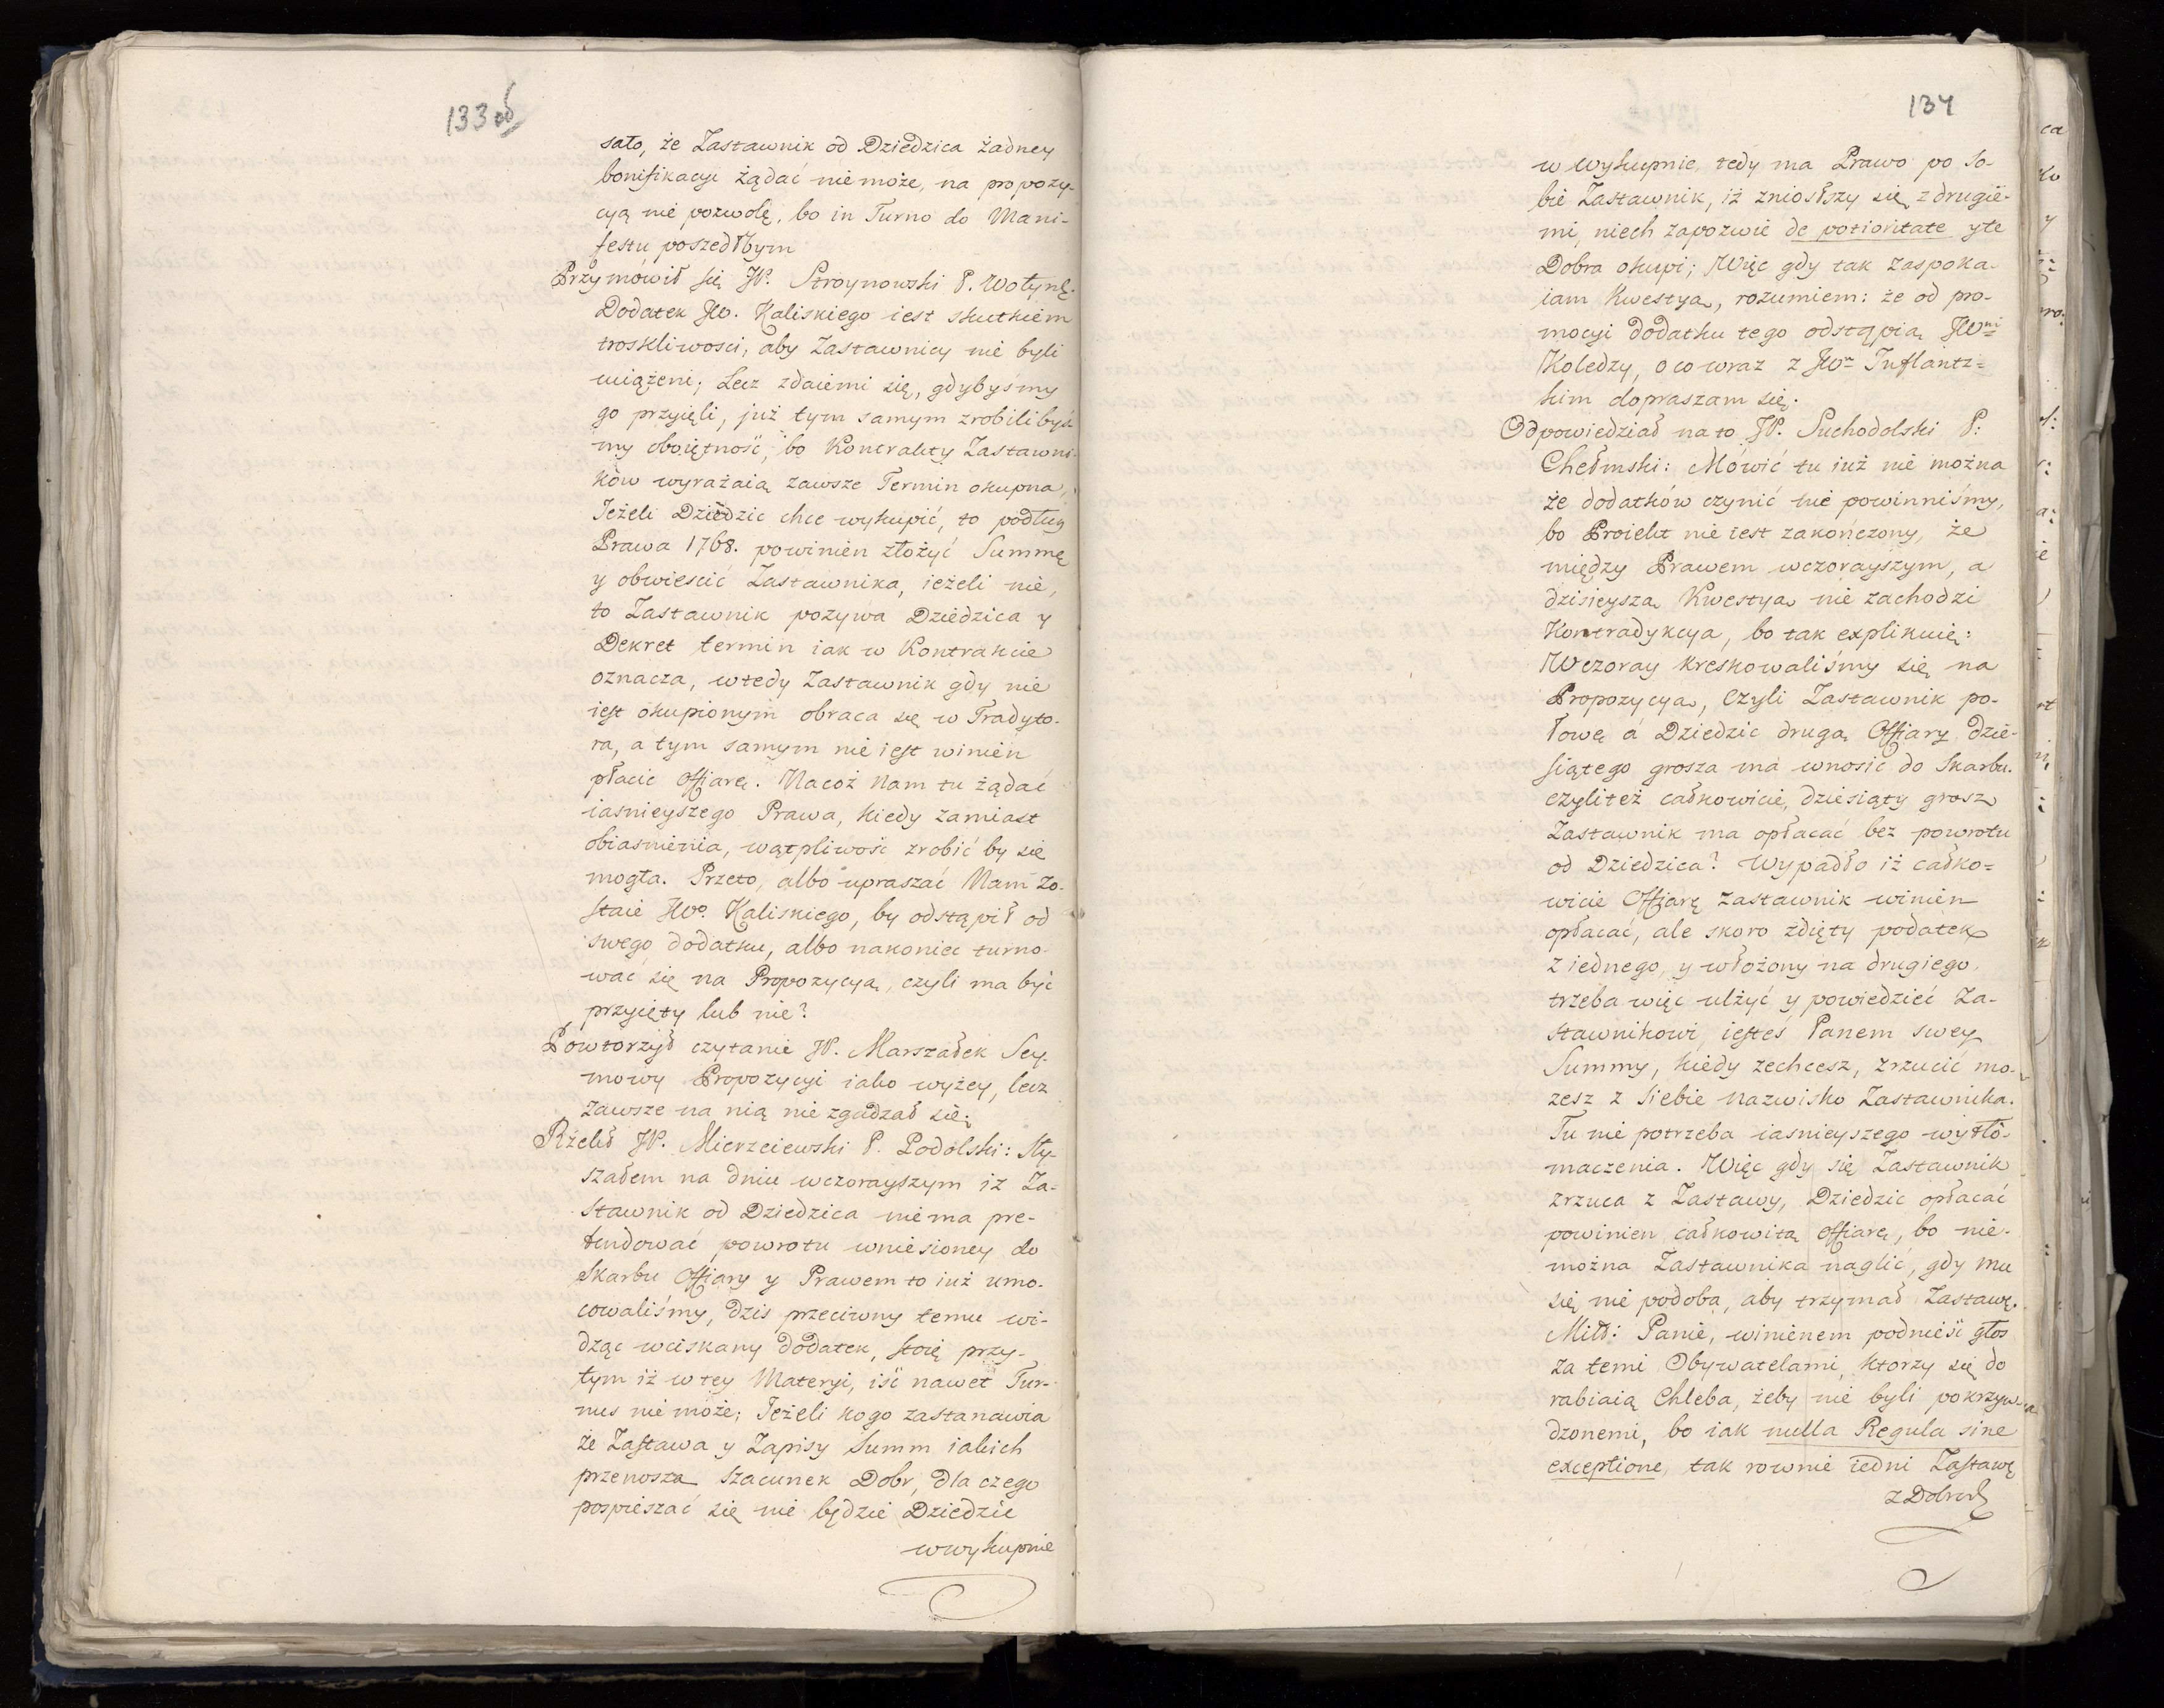 133 об
sało, że Zastawnik od Dziedzica żadney
bonifikacyi żądać niemoże, na propozy-
cyą nie pozwolę, bo in Turno do Mani-
festu poszedłbym
Przymówił się JP. Stroynowski P. Wołyńs.
Dodatek JW. Kaliskiego iest skutkiem
troskliwosci, aby Zastawnicy nie byli
uciążeni; Lecz zdaiemi się, gdybyśmy
go przyięli, już tym samym zrobilibyś-
my oboiętność, bo Kontrakty Zastawni-
ków wyrażaią zawsze Termin okupna,
Jeżeli Dziedzic chce wykupić, to podług
Prawa 1768. powinien złożyć Summę
y obwiescić Zastawnika, ieżeli nie,
to Zastawnik pozywa Dziedzica y
Dekret termin iak w Kontrakcie
oznacza, wtedy Zastawnik gdy nie
iest okupionym obraca się w Tradyto-
ra, a tym samym nie iest winien
płacic Offiarę. Nacoż Nam tu żądać
iasnieyszego Prawa, kiedy zamiast
obiasnienia, wątpliwość zrobić by się
mogła. Przeto, albo upraszać Nam zo-
staie JWo. Kaliskiego, by odstąpił od
swego dodatku, albo nakoniec turno-
wać się na Propozycyą, czyli ma być
przyięty lub nie?
Powtorzył czytanie JP. Marszałek Sey-
mowy Propozycyi iako wyżey, lecz
zawsze na nią nie zgadzał się;
Rzekł JP. Mierzeiewski P. Podolski: Sły-
szałem na dniu wczorayszym iż Za-
stawnik od Dziedzica niema pre-
tendować powrotu wniesioney do
Skarbu Offiary y Prawem to iuż umo-
cowaliśmy, dzis przeciwny temu wi-
dząc wciskany dodatek, stoię przy-
tym iż w tey Materyi, iść nawet Tur-
nus nie może; Jeżeli kogo zastanawia
że Zastawa y Zapisy Summ iakich
przenosza szacunek Dobr, dla czego
pospieszać się nie będzie Dziedzic
w wykupnie
134
w wykupnie, tedy ma Prawo po So-
bie Zastawnik, iż zniosłszy się z drugie-
mi, niech zapozwie de potioritate y te
Dobra okupi; Więc gdy tak zaspoka-
iam Kwestyą, rozumiem: że od pro-
mocyi dodatku tego odstąpią JWni
Koledzy, o co wraz z JWm Inflantz=
kim dopraszam się.
Odpowiedział na to JP. Suchodolski P:
Chełmski: Mówić tu iuż nie można
że dodatków czynić nie powinniśmy,
bo Proiekt nie iest zakończony, że
między Prawem wczorayszym, a
dzisieyszą Kwestyą nie zachodzi
Kontradykcya, bo tak explikuię:
Wczoray kreskowaliśmy się na
Propozycyą, czyli Zastawnik po-
łowę á Dziedzic drugą Offiary dzie-
siątego grosza ma wnosić do Skarbu.
czyliteż całkowicie, dziesiąty grosz
Zastawnik ma opłacać bez powrotu
od Dziedzica? Wypadło iż całko=
wicie Offiarę Zastawnik winien
opłacać, ale skoro zdięty podatek
z iednego, y włożony na drugiego,
trzeba więc ulżyć y powiedzieć Za-
stawnikowi, iesteś Panem swey
Summy, kiedy zechcesz, zrzucić mo-
zesz z siebie nazwisko Zastawnika.
Tu nie potrzeba iasnieyszego wytłó-
maczenia. Więc gdy się Zastawnik
zrzuca z Zastawy, Dziedzic opłacać
powinien całkowitą Offiarę, bo nie-
można Zastawnika naglić, gdy mu
się nie podoba, aby trzymał Zastawę.
Miłł: Panie, winienem podnieść głos
za temi Obywatelami, ktorzy się do
rabiaią Chleba, żeby nie byli pokrzyw-
dzonemi, bo iak nulla Regula sine
exceptione, tak rownie iedni Zastawę
z Dobrod